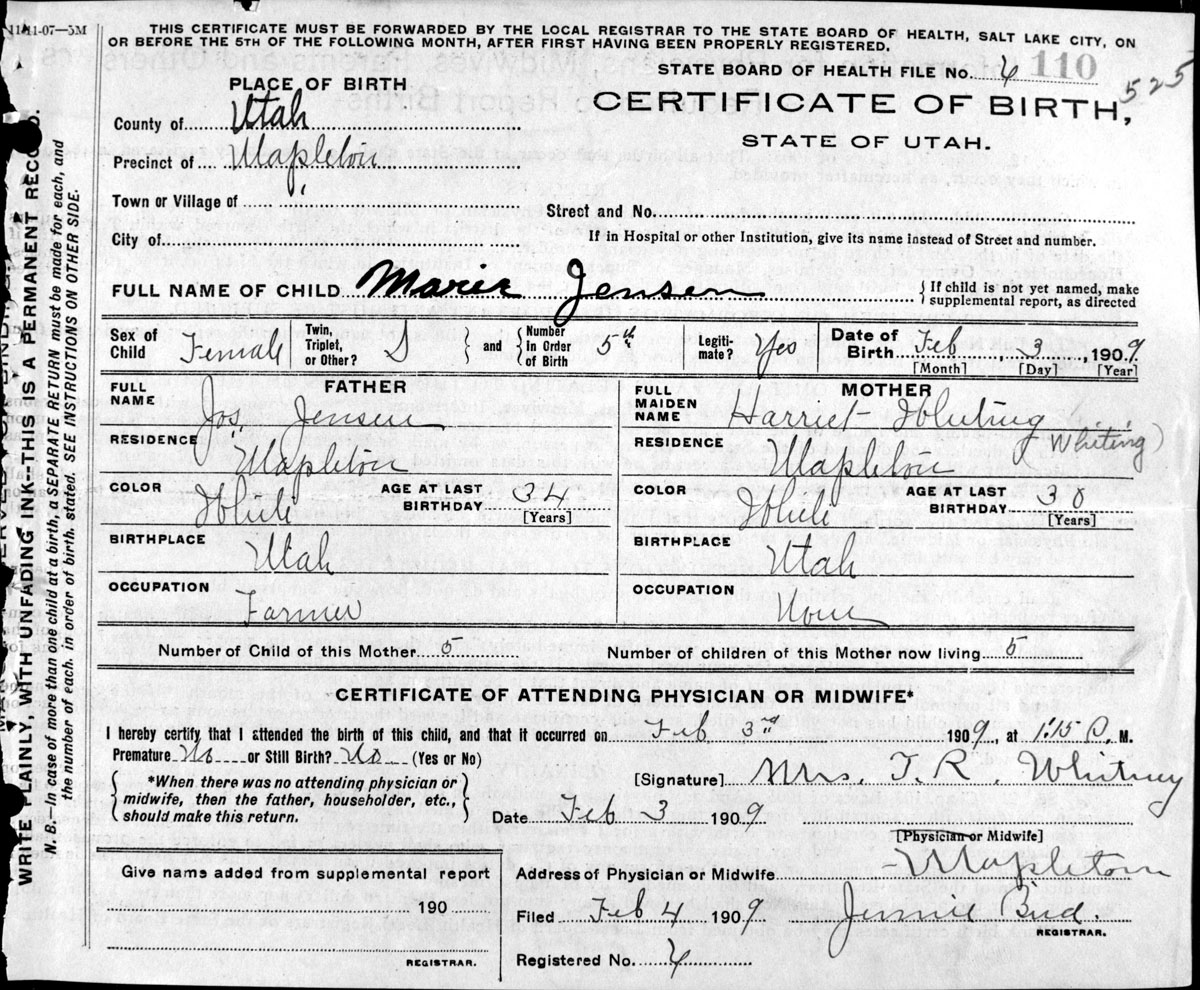 11-11-07—5M
THIS CERTIFICATE MUST BE FORWARDED BY THE LOCAL REGISTRAR TO THE STATE BOARD OF HEALTH, SALT LAKE CITY, ON
OR BEFORE THE 5TH OF THE FOLLOWING MONTH, AFTER FIRST HAVING BEEN PROPERLY REGISTERED.
STATE BOARD OF HEALTH FILE No. 4 110
525
PLACE OF BIRTH
CERTIFICATE OF BIRTH,
STATE OF UTAH.
County of Utah
Precinct of Mapleton
Town or Village of "
Street and No.
City of
If in Hospital or other Institution, give its name instead of Street and number.
FULL NAME OF CHILD Marie Jensen { If child is not yet named, make
supplemental report, as directed
Sex of Child Female Twin, Triplet, or Other? } and { Number in Order of Birth 5th Legiti-mate? Yes Date of Birth Feb, 3, 1909
[Month] [Day] [Year]
FATHER
FULL NAME Jos. Jensen
RESIDENCE Mapleton
COLOR White AGE AT LAST BIRTHDAY 34
[Years]
BIRTHPLACE Utah
OCCUPATION Farmer
MOTHER
FULL MAIDEN NAME Harriet Whiting
Whiting)
RESIDENCE Mapleton
COLOR White AGE AT LAST BIRTHDAY 30
[Years]
BIRTHPLACE Utah
OCCUPATION None
Number of Child of this Mother 5 Number of children of this Mother now living 5
CERTIFICATE OF ATTENDING PHYSICIAN OR MIDWIFE*
I hereby certify that I attended the birth of this child, and that it occurred on Feb 3rd 1909, at 1:15 P. M.
Premature No or Still Birth? No (Yes or No)
{ *When there was no attending physician or
midwife, then the father, householder, etc.,
should make this return. }
[Signature] Mrs. T. R. Whitney
Date Feb 3 1909
[Physician or Midwife]
Address of Physician or Midwife Mapleton
Filed Feb 4 1909 Jennie Bird.
REGISTRAR.
Registered No. 4
Give name added from supplemental report
190
REGISTRAR.
WRITE PLAINLY, WITH UNFADING INK—THIS IS A PERMANENT RECORD.
N. B.—In case of more than one child at a birth, a SEPARATE RETURN must be made for each, and
the number of each, in order of birth, stated. SEE INSTRUCTIONS ON OTHER SIDE.